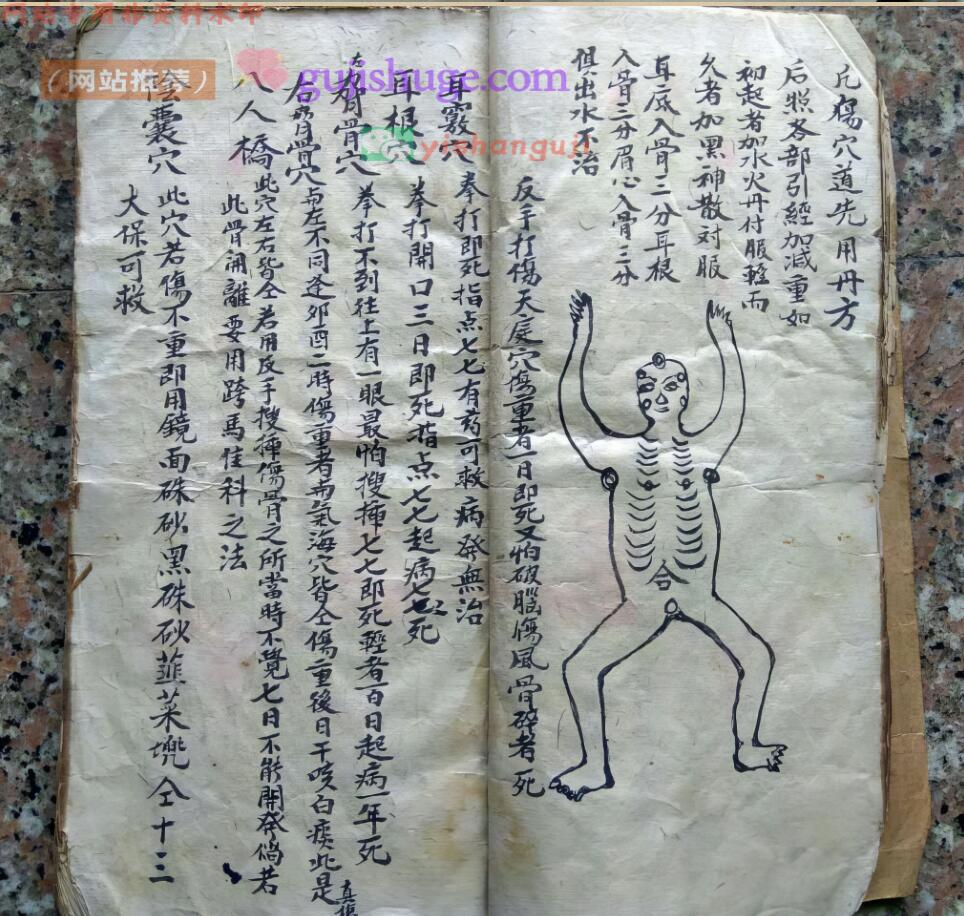 凡傷穴道先用丹方
后照各部引經加減重如
初起者加水火丹付服輕而
久者加黑神散对服
耳底入骨三分耳根
入骨三分眉心入骨三分
俱出水不治
反手打傷天庭穴傷重者一日即死又怕破腦傷風骨碎者死
合
耳竅穴 拳打即死指点七七有药可救病發無治
耳根穴 拳打開口三日即死指点七七起病七七死
左背骨穴 拳打不到往上有一眼最怕搜插七七即死輕者百日起病一年死
右背骨穴 与左不同逢卯酉二時傷重者与氣海穴皆仝傷重後日干咳白痰此是真損
八人橋 此穴左右皆仝若用反手搜插傷骨之所當時不覺七日不能開發倘若
此骨開離要用跨馬佳科之法
陰囊穴 此穴若傷不重即用鏡面硃砂黑硃砂韮菜兠仝十三
大保可救
网站专用推资料水印
(网站推荐)
gujishuge.com
yishanguji